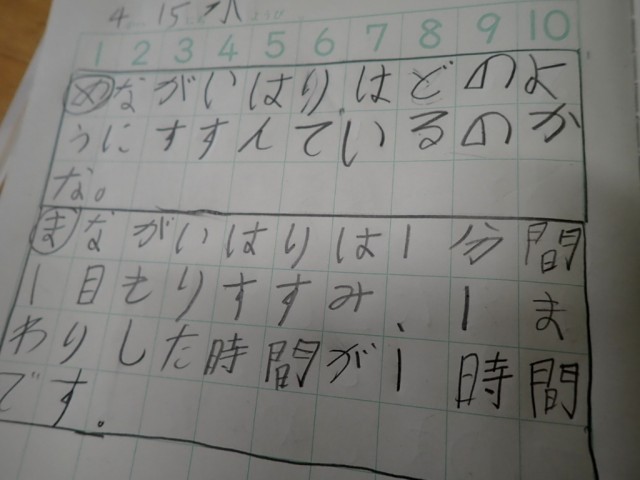 4. 15 水
1 2 3 4 5 6 7 8 9 10
めながいはりはどのよ
うにすすんでいるのか
な。
まながいはりは1分間
1目もりすすみ、1ま
わりした時間が1時間
です。